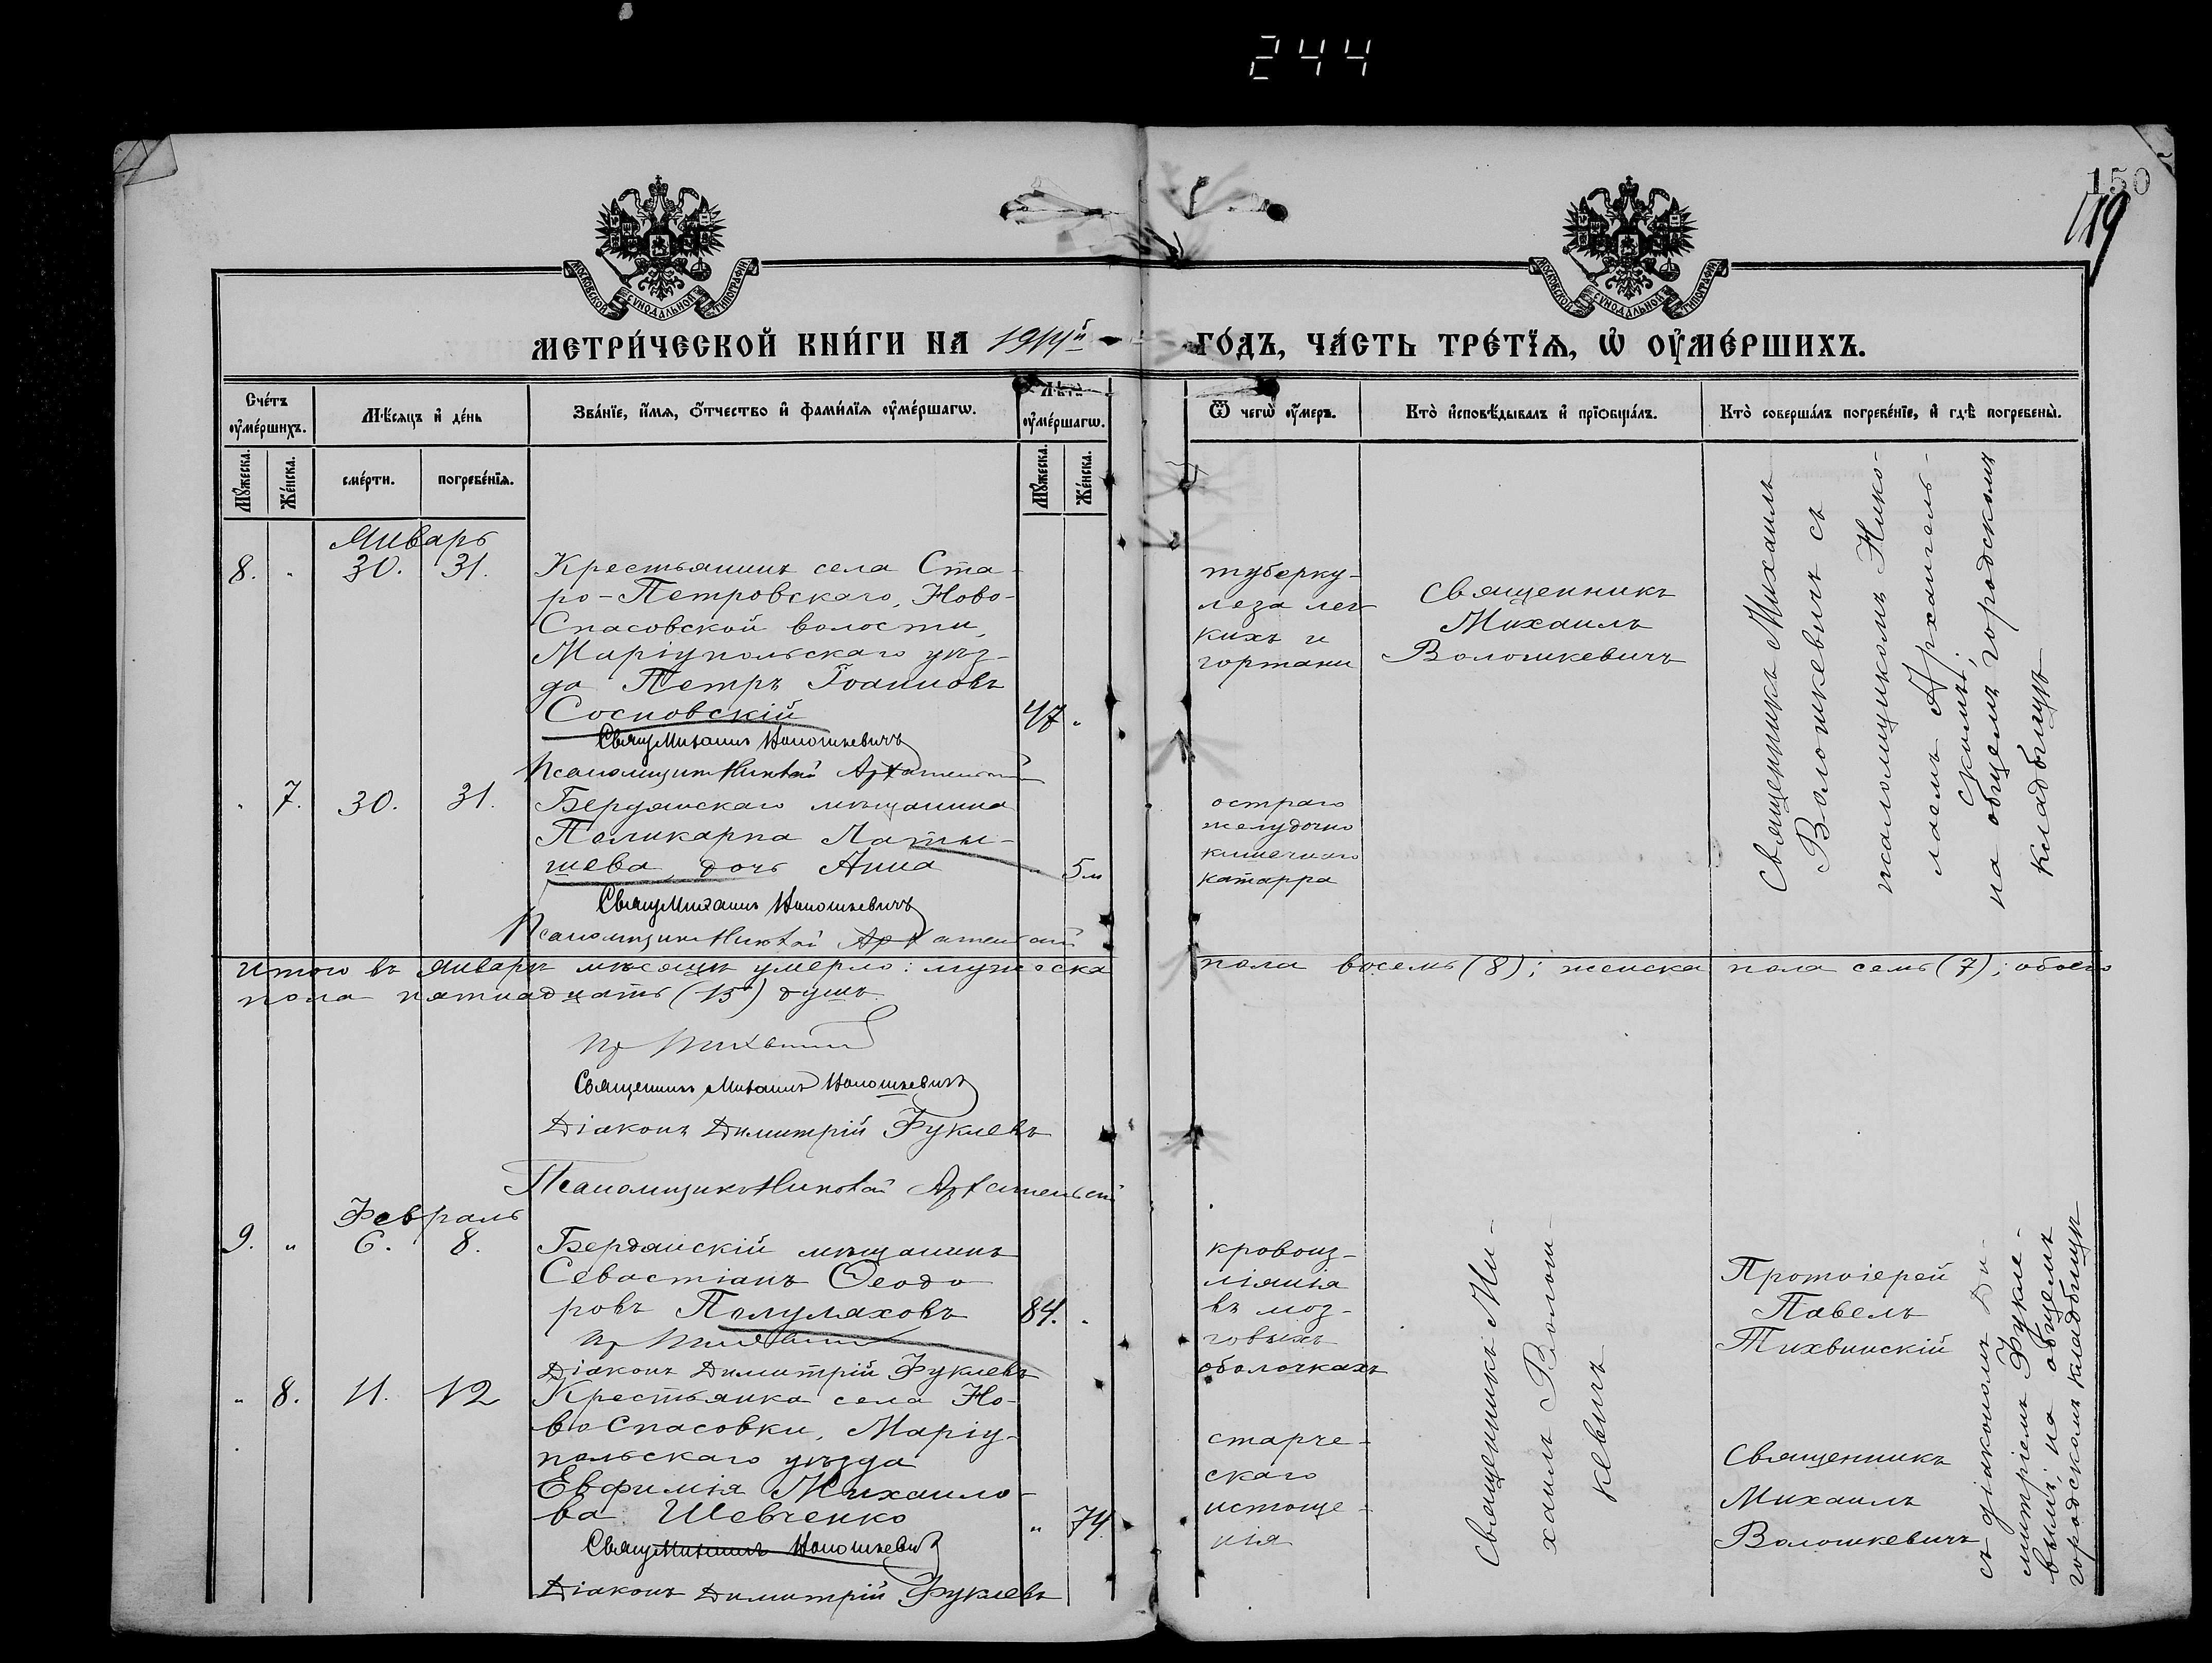 244
150
119
МОСКОВСКОЙ СѴНОДАЛЬНОЙ ТИПОГРАФІИ
МОСКОВСКОЙ СѴНОДАЛЬНОЙ ТИПОГРАФІИ
МЕТРИ́ЧЕСКОЙ КНИ́ГИ НА 1911й ГО́ДЪ, ЧА́СТЬ ТРЕ́ТЇѦ, Ѡ҆ ОУ҆МЕ́РШИХЪ.
Сче́тъ оу҆ме́ршихъ.
Мѣ́сѧцъ и҆ де́нь
Зва́нїе, и҆́мѧ, ѻ҆́тчество и҆ фами́лїѧ оу҆ме́ршагѡ.
Лѣ́та оу҆ме́ршагѡ.
Ѿ чегѡ̀ оу҆́меръ.
Кто̀ и҆сповѣ́дывалъ и҆ прїѻбща́лъ.
Кто̀ соверша́лъ погребе́нїе, и҆ гдѣ̀ погребены̀.
Му́жеска.
Же́нска.
сме́рти.
погребе́нїѧ.
Му́жеска.
Же́нска.
Январь
8. " 30. 31.
Крестьянинъ села Ста-
ро-Петровскаго, Ново-
Спасовской волости,
Маріупольскаго уѣз-
да Петръ Іоанновъ
Сосновскій 47 "
Свящ Михаилъ Волошкевичъ
Псаломщикъ Николай Архангельскій
туберку-
леза лег-
кихъ и
гортани
Священникъ
Михаилъ
Волошкевичъ
Священникъ Михаилъ
Волошкевичъ съ
псаломщикомъ Нико-
лаемъ Архангель-
скимъ;
на общемъ городскомъ
кладбищѣ
" 7. 30. 31.
Бердянскаго мѣщанина
Поликарпа Латы-
шева, дочь Анна " 5 м
Свящ Михаилъ Волошкевичъ
Псаломщикъ Николай Архангельскій
остраго
желудочно
кишечнаго
катарра
Итого въ январѣ мѣсяцѣ умерло: мужеска пола восемь (8); женска пола семь (7); обоего
пола пятнадцать (15) душъ.
Пр Тихвинскій
Священникъ Михаилъ Волошкевичъ
Діаконъ Димитрій Фуклевъ
Псаломщикъ Николай Архангельскій
Февраль
9. " 6. 8.
Бердянскій мѣщанинъ
Севастіанъ Ѳеодо
ровъ Полуляховъ 84. "
Пр Тихвинскій
Діаконъ Димитрій Фуклевъ
кровоиз-
ліянія
въ моз-
говыхъ
оболочкахъ
Священникъ Ми-
хаилъ Волош-
кевичъ
Протоіерей
Павелъ
Тихвинскій
съ діакономъ Ди-
митріемъ Фукле-
вымъ; на общемъ
городскомъ кладбищѣ
" 8. 11. 12
Крестьянка села Но-
воСпасовки, Маріу-
польскаго уѣзда
Евфимія Михаило-
ва Шевченко " 74
Свящ Михаилъ Волошкевичъ
Діаконъ Димитрій Фуклевъ
старче-
скаго
истоще-
нія
Священникъ
Михаилъ
Волошкевичъ